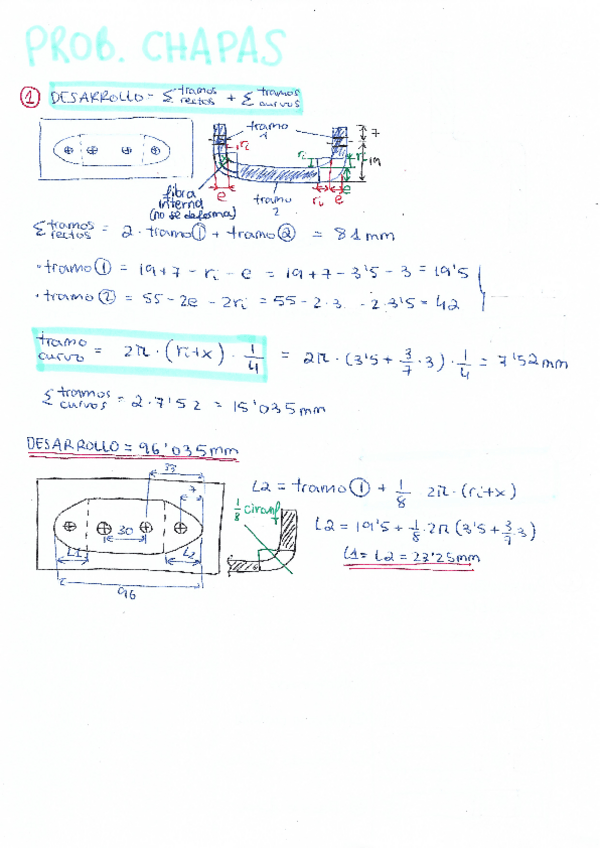 PROB. CHAPAS
① DESARROLLO = Σ tramos rectos + Σ tramos curvos
tramo 1
7
19
ri
ri
r
e
e
ri
e
fibra interna (no se deforma)
tramo 2
Σ tramos rectos = 2 · tramo ① + tramo ② = 81mm
· tramo ① = 19+7 - ri - e = 19+7-3'5-3 = 19'5
· tramo ② = 55 - 2e - 2ri = 55 - 2·3 - 2·3'5 = 42
tramo curvo = 2π · (ri+x) · 1/4 = 2π · (3'5 + 3/7 · 3) · 1/4 = 7'52mm
Σ tramos curvos = 2·7'52 = 15'035mm
DESARROLLO = 96'035mm
33
7
30
L1
L2
96
1/8 circunf
L2 = tramo ① + 1/8 2π·(ri+x)
L2 = 19'5 + 1/8 · 2π (3'5 + 3/7 · 3)
L1 = L2 = 23'25mm